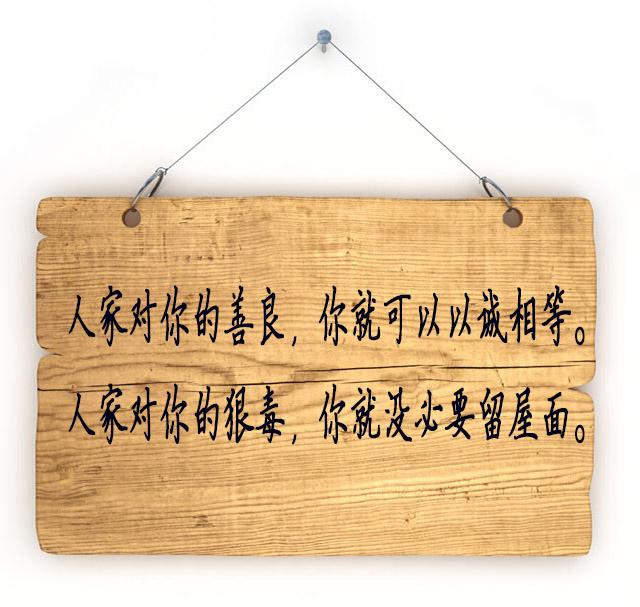 人家对你的善良，你就可以以诚相等。
人家对你的狠毒，你就没必要留屋面。